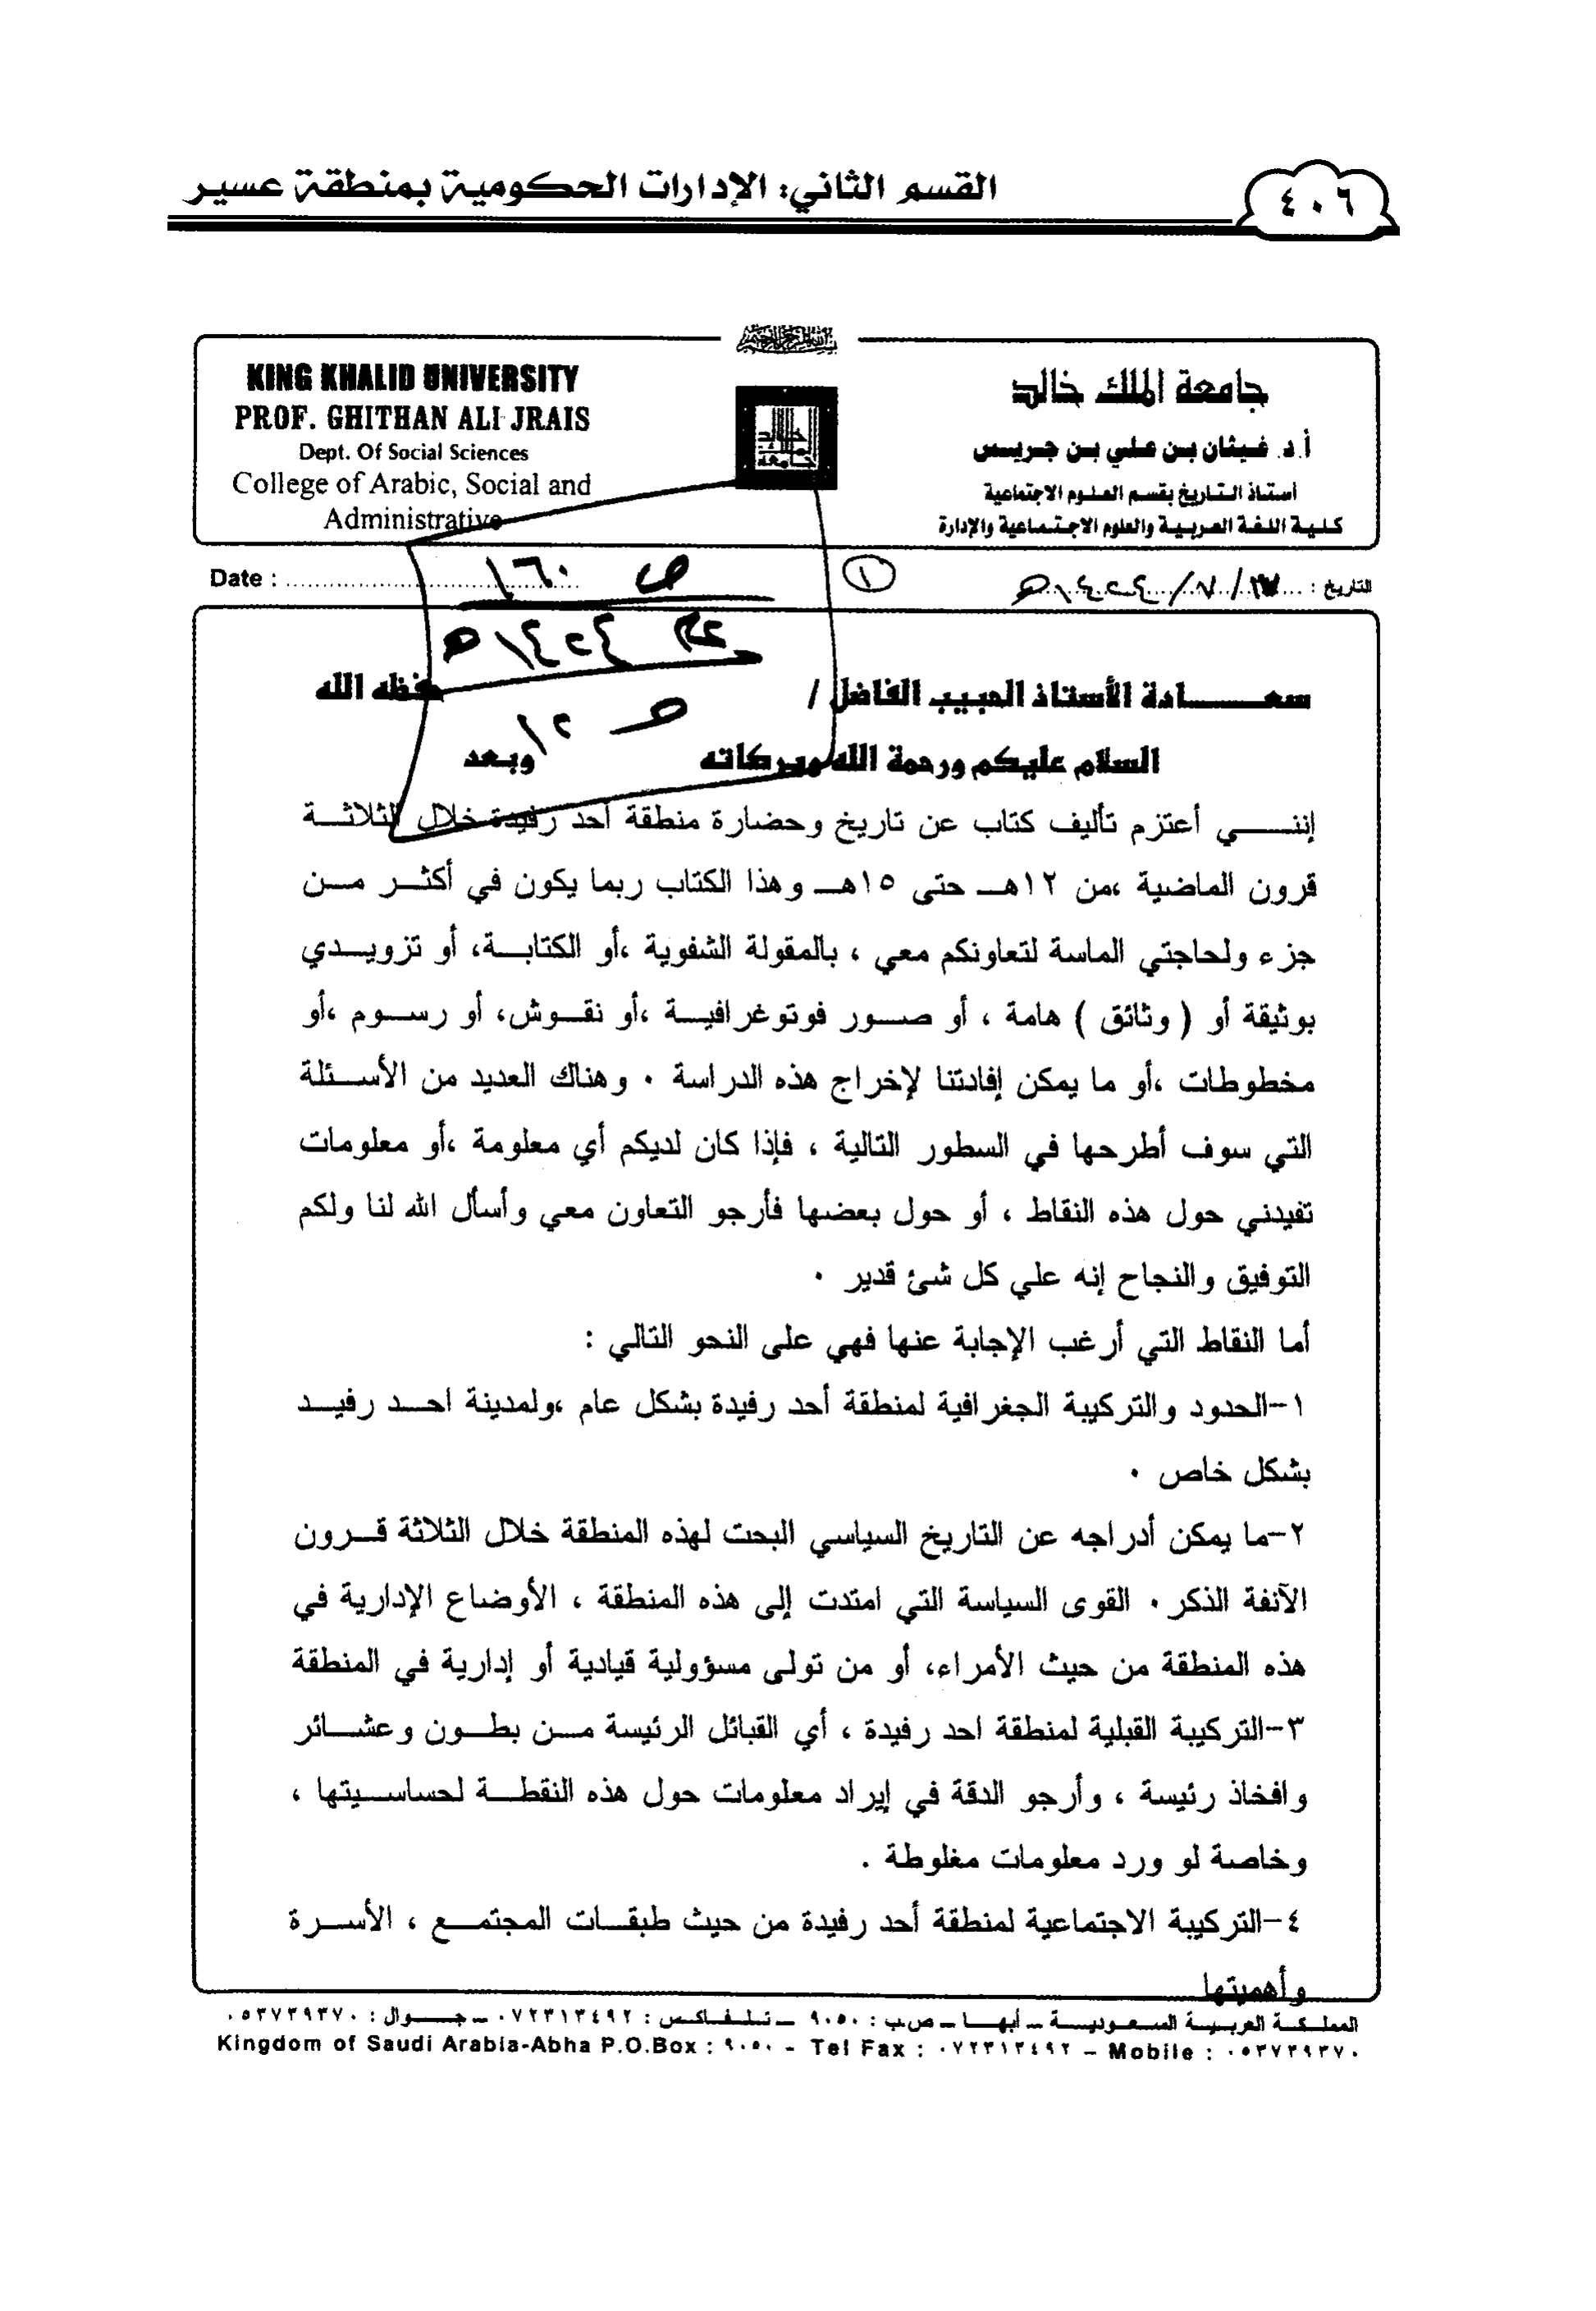 القسم الثاني: الإدارات الحكومية بمنطقة عسير
٤٠٦
KING KHALID UNIVERSITY
PROF. GHITHAN ALI JRAIS
Dept. Of Social Sciences
College of Arabic, Social and
Administrative
جامعة الملك خالد
أ.د. غيثان بن علي بن جريس
أستاذ التاريخ بقسم العلوم الاجتماعية
كلية اللغة العربية والعلوم الاجتماعية والإدارة
التاريخ : /٧/١٤٢٤هـ
١
Date :
ص ١٦٠
١٤٢٤هـ
ص ١٢
سعـــــادة الأستاذ الحبيب الفاضل / حفظه الله
السلام عليكم ورحمة الله وبركاته وبعد
إننـــي أعتزم تأليف كتاب عن تاريخ وحضارة منطقة أحد رفيدة خلال الثلاثـة
قرون الماضية ،من ١٢هـ حتى ١٥هـ وهذا الكتاب ربما يكون في أكثر من
جزء ولحاجتي الماسة لتعاونكم معي ، بالمقولة الشفوية ،أو الكتابـة، أو تزويـدي
بوثيقة أو ( وثائق ) هامة ، أو صور فوتوغرافيـة ،أو نقـوش، أو رسـوم ،أو
مخطوطات ،أو ما يمكن إفادتنا لإخراج هذه الدراسة ٠ وهناك العديد من الأسـئلة
التي سوف أطرحها في السطور التالية ، فإذا كان لديكم أي معلومة ،أو معلومات
تفيدني حول هذه النقاط ، أو حول بعضها فأرجو التعاون معي وأسأل الله لنا ولكم
التوفيق والنجاح إنه علي كل شئ قدير ٠
أما النقاط التي أرغب الإجابة عنها فهي على النحو التالي :
١-الحدود والتركيبة الجغرافية لمنطقة أحد رفيدة بشكل عام ،ولمدينة احـد رفيـد
بشكل خاص ٠
٢-ما يمكن أدراجه عن التاريخ السياسي البحت لهذه المنطقة خلال الثلاثة قـرون
الآنفة الذكر ٠ القوى السياسة التي امتدت إلى هذه المنطقة ، الأوضاع الإدارية في
هذه المنطقة من حيث الأمراء، أو من تولى مسؤولية قيادية أو إدارية في المنطقة
٣-التركيبة القبلية لمنطقة احد رفيدة ، أي القبائل الرئيسة مـن بطـون وعشـائر
وافخاذ رئيسة ، وأرجو الدقة في إيراد معلومات حول هذه النقطـة لحساسـيتها ،
وخاصة لو ورد معلومات مغلوطة .
٤-التركيبة الاجتماعية لمنطقة أحد رفيدة من حيث طبقـات المجتمـع ، الأسـرة
وأهميتها
المملكـة العربيـة السـعوديـة ـ أبهـا ـ ص.ب : ٩٠٥٠ ـ تـلـفـاكـس : ٠٧٢٣١٣٤٩٢ ـ جـوال : ٠٥٣٧٣٩٣٧٠
Kingdom of Saudi Arabia-Abha P.O.Box : ٩٠٥٠ - Tel Fax : ٠٧٢٣١٣٤٩٢ - Mobile : ٠٥٣٧٣٩٣٧٠